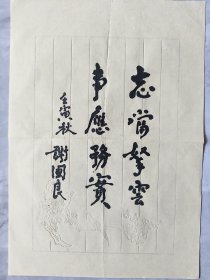 志当拏雲
事應務實
壬寅秋
謝國良